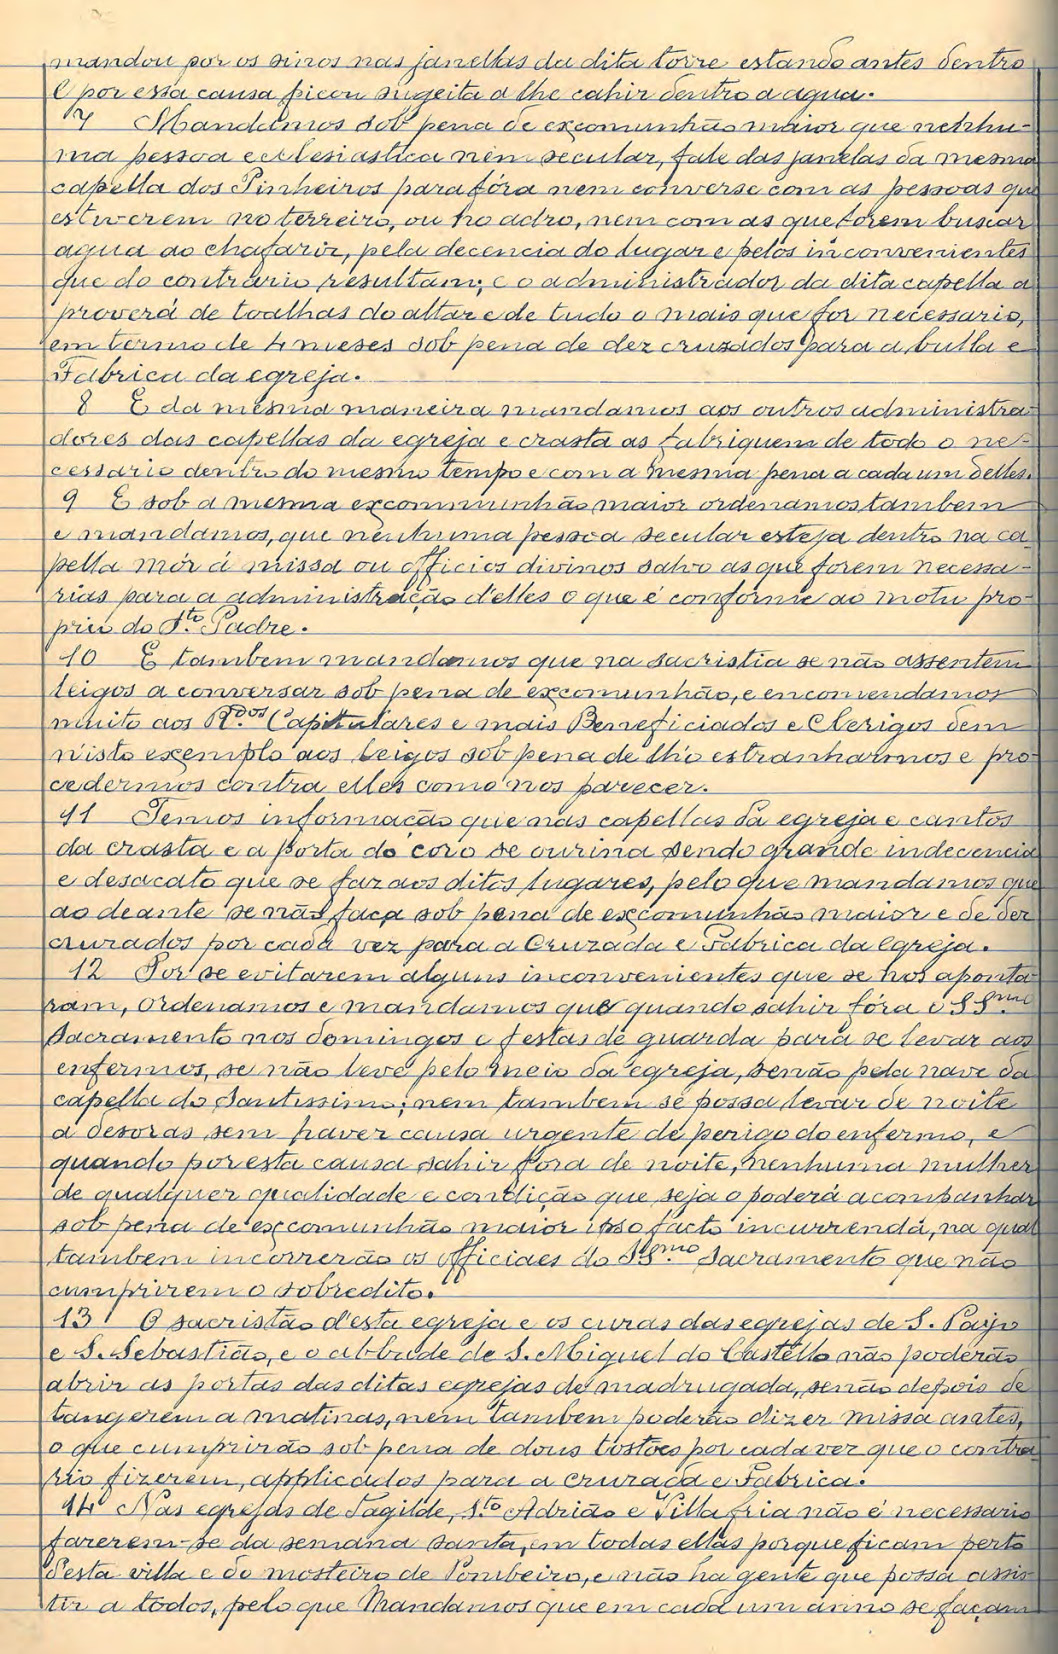 mandou por os sinos nas janellas da dita torre estando antes dentro
E por essa causa ficou sugeita a lhe cahir dentro a agua.
7 Mandamos sob pena de excomunhão maior que nenhu-
ma pessoa ecclesiastica nem secular, fale das janelas da mesma
capella dos Pinheiros para fóra nem converse com as pessoas que
estiverem no terreiro, ou no adro, nem com as que forem buscar
agua ao chafariz, pela decencia do lugar e pelos inconvenientes
que do contrario resultam; e o administrador da dita capella a
proverá de toalhas do altar e de tudo o mais que for necessario,
em termo de 4 meses sob pena de dez cruzados para a bulla e
Fabrica da egreja.
8 E da mesma maneira mandamos aos outros administra-
dores das capellas da egreja e crasta as fabriquem de todo o ne-
cessario dentro do mesmo tempo e com a mesma pena a cada um delles.
9 E sob a mesma excommunhão maior ordenamos tambem
e mandamos, que nenhuma pessoa secular esteja dentro na ca-
pella mór á missa ou officios divinos salvo as que forem necessa-
rias para a administração d'elles o que é conforme ao motu pro-
prio do S.to Padre.
10 E tambem mandamos que na sacristia se não assentem
leigos a conversar sob pena de excomunhão, e encomendamos
muito aos R.dos Capitulares e mais Beneficiados e Clerigos dem
n'isto exemplo aos leigos sob pena de lh'o estranharmos e pro-
cedermos contra elles como nos parecer.
11 Temos informação que nas capellas da egreja e cantos
da crasta e a porta do coro se ourina sendo grande indecencia
e desacato que se faz aos ditos lugares, pelo que mandamos que
ao deante se não faça sob pena de excomunhão maior e de dez
cruzados por cada vez para a Cruzada e Fabrica da egreja.
12 Por se evitarem alguns inconvenientes que se nos aponta-
ram, ordenamos e mandamos que quando sahir fóra o SS.mo
Sacramento nos domingos e festas de guarda para se levar aos
enfermos, se não leve pelo meio da egreja, senão pela nave da
capella do Santissimo; nem tambem se possa levar de noite
a desoras sem haver causa urgente de perigo do enfermo, e
quando por esta causa sahir fora de noite, nenhuma mulher
de qualquer qualidade e condição que seja o poderá acompanhar
sob pena de excomunhão maior ipso facto incurrenda, na qual
tambem incorrerão os officiaes do SS.mo Sacramento que não
cumprirem o sobredito.
13 O sacristão d'esta egreja e os curas das egrejas de S. Payo
e S. Sebastião, e o abbade de S. Miguel do Castello não poderão
abrir as portas das ditas egrejas de madrugada, senão depois de
tangerem a matinas, nem tambem poderão dizer missa antes,
o que cumprirão sob pena de dous tostões por cada vez que o contra-
rio fizerem, applicados para a cruzada e Fabrica.
14 Nas egrejas de Tagilde, S.to Adrião e Villa fria não é necessario
fazerem-se da semana santa, em todas ellas porque ficam perto
desta villa e do mosteiro de Pombeiro, e não ha gente que possa assis-
tir a todos, pelo que Mandamos que em cada um anno se façam